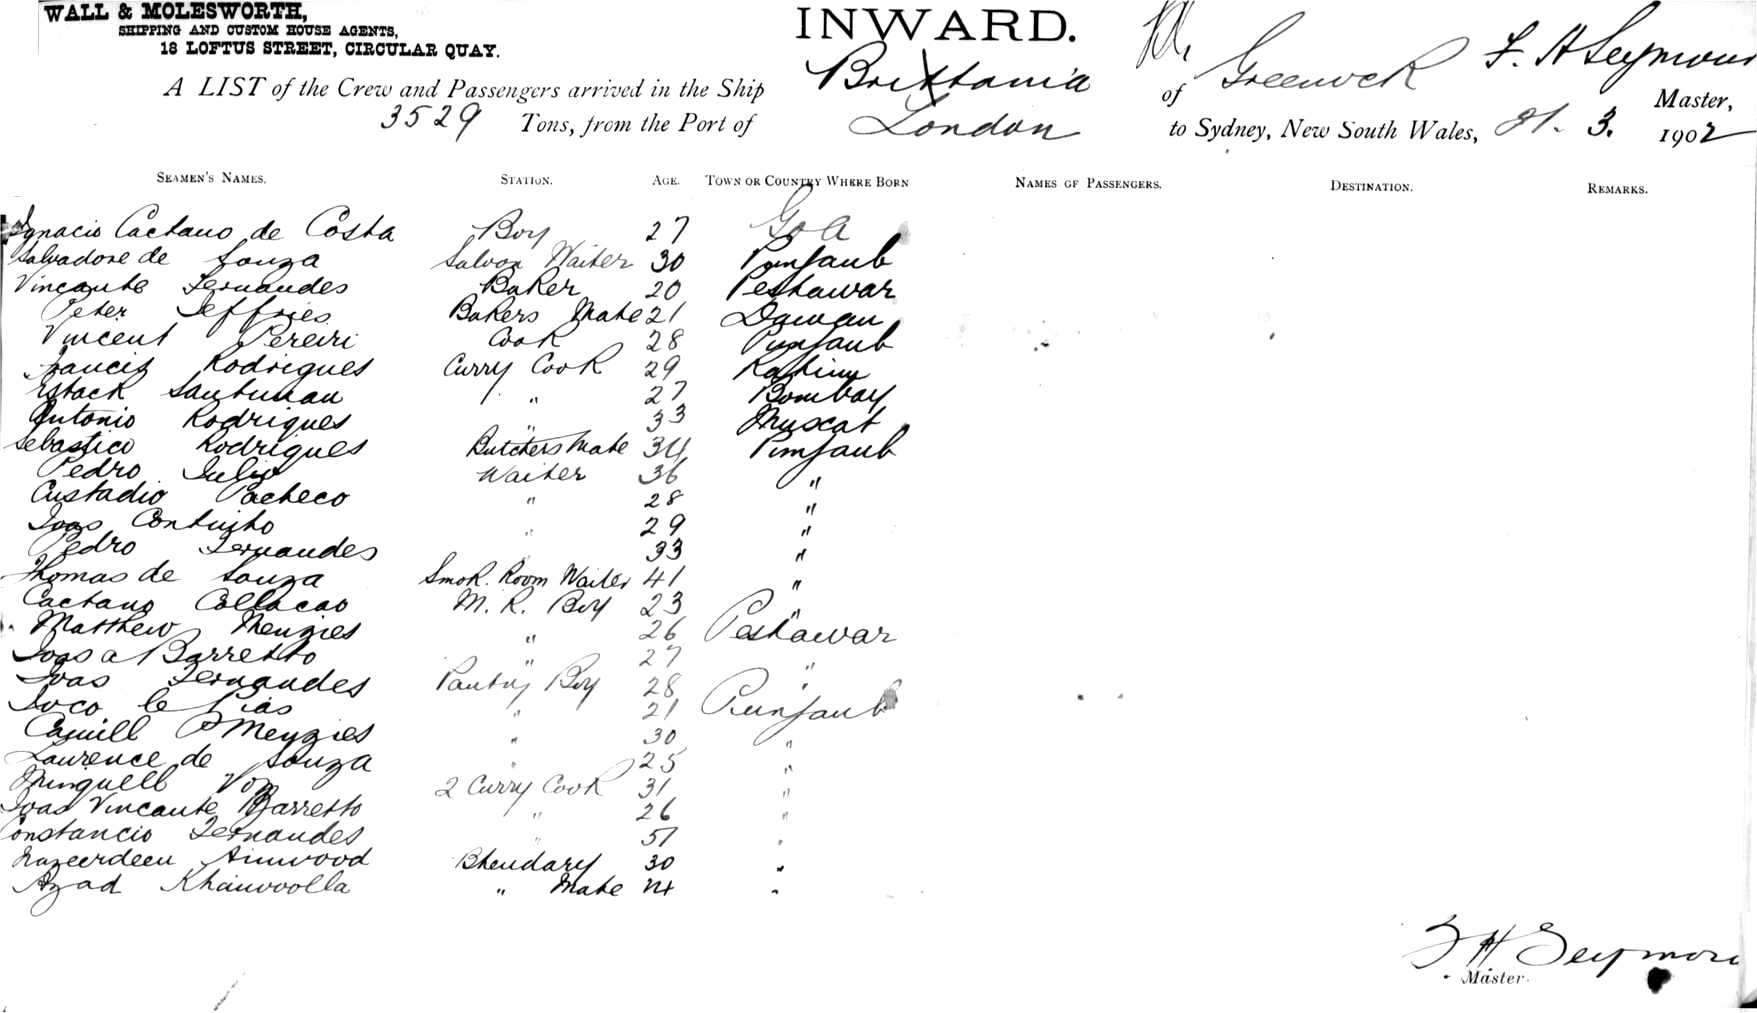 WALL & MOLESWORTH,
SHIPPING AND CUSTOM HOUSE AGENTS,
18 LOFTUS STREET, CIRCULAR QUAY.
INWARD.
A LIST of the Crew and Passengers arrived in the Ship Brittania of Greenock F. H Seymour Master,
3529 Tons, from the Port of London to Sydney, New South Wales, 21. 3. 1902
SEAMEN'S NAMES. STATION. AGE. TOWN OR COUNTRY WHERE BORN NAMES OF PASSENGERS. DESTINATION. REMARKS.
Ignacio Caetano de Costa Boy 27 Goa
Salvadore de Souza Saloon Waiter 30 Punjaub
Vincante Fernandes Baker 20 Peshawar
Peter Jeffries Bakers Mate 21 Daman
Vincent Pereiri Cook 28 Punjaub
Francis Rodrigues Curry Cook 29 
Santuman " 27 Bombay
Antonio Rodrigues " 33 Muscat
Sebastico Rodrigues Butchers Mate 34 Punjaub
Pedro Julio Waiter 36 "
Custadio Pacheco " 28 "
Joas " 29 "
Pedro Fernandes " 33 "
Thomas de Souza Smok. Room Waiter 41 "
Caetano Collacao M. R. Boy 23 "
Matthew Menzies " 26 Peshawar
Joas a Barretto " 27 "
Joas Fernandes Pantry Boy 28 "
Joco " 21 Punjaub
Camill P Menzies " 30 "
Laurence de Souza " 25 "
Minguell 2 Curry Cook 31 "
Joao Vincante Barretto " 26 "
Constancio Fernandes " 51 "
Ainwood Bhendary 30 "
Azad Khanwoolla " Mate "
F H Seymour
Master.